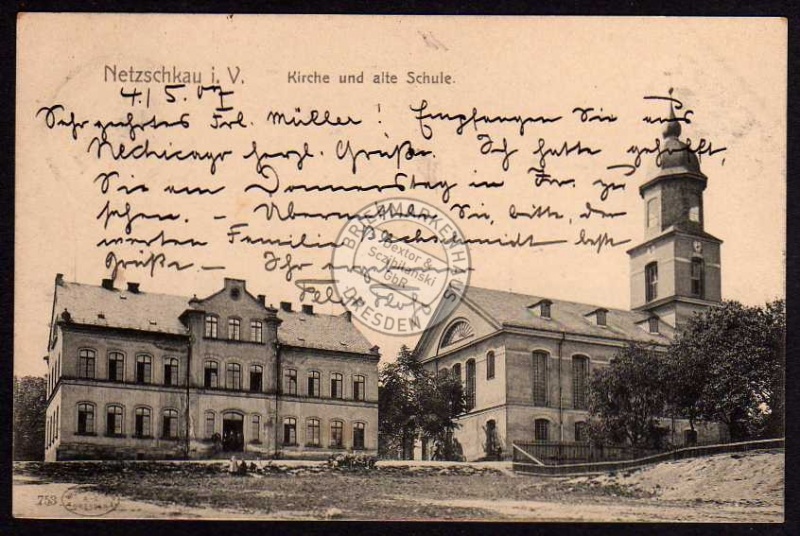 Netzschkau i. V. Kirche und alte Schule.
4./5. 07
Sehr geehrtes Frl. Müller! Empfangen Sie aus
herzl. Grüße. Ich hatte gehofft,
Sie am Donnerstag in Fr. zu
sehen. – Übermitteln Sie, bitte, der
werten Familie best
Grüße. – Ihr
BRIEFMARKENHAUS
Dextor &
Sczibilanski
GbR
DRESDEN
753